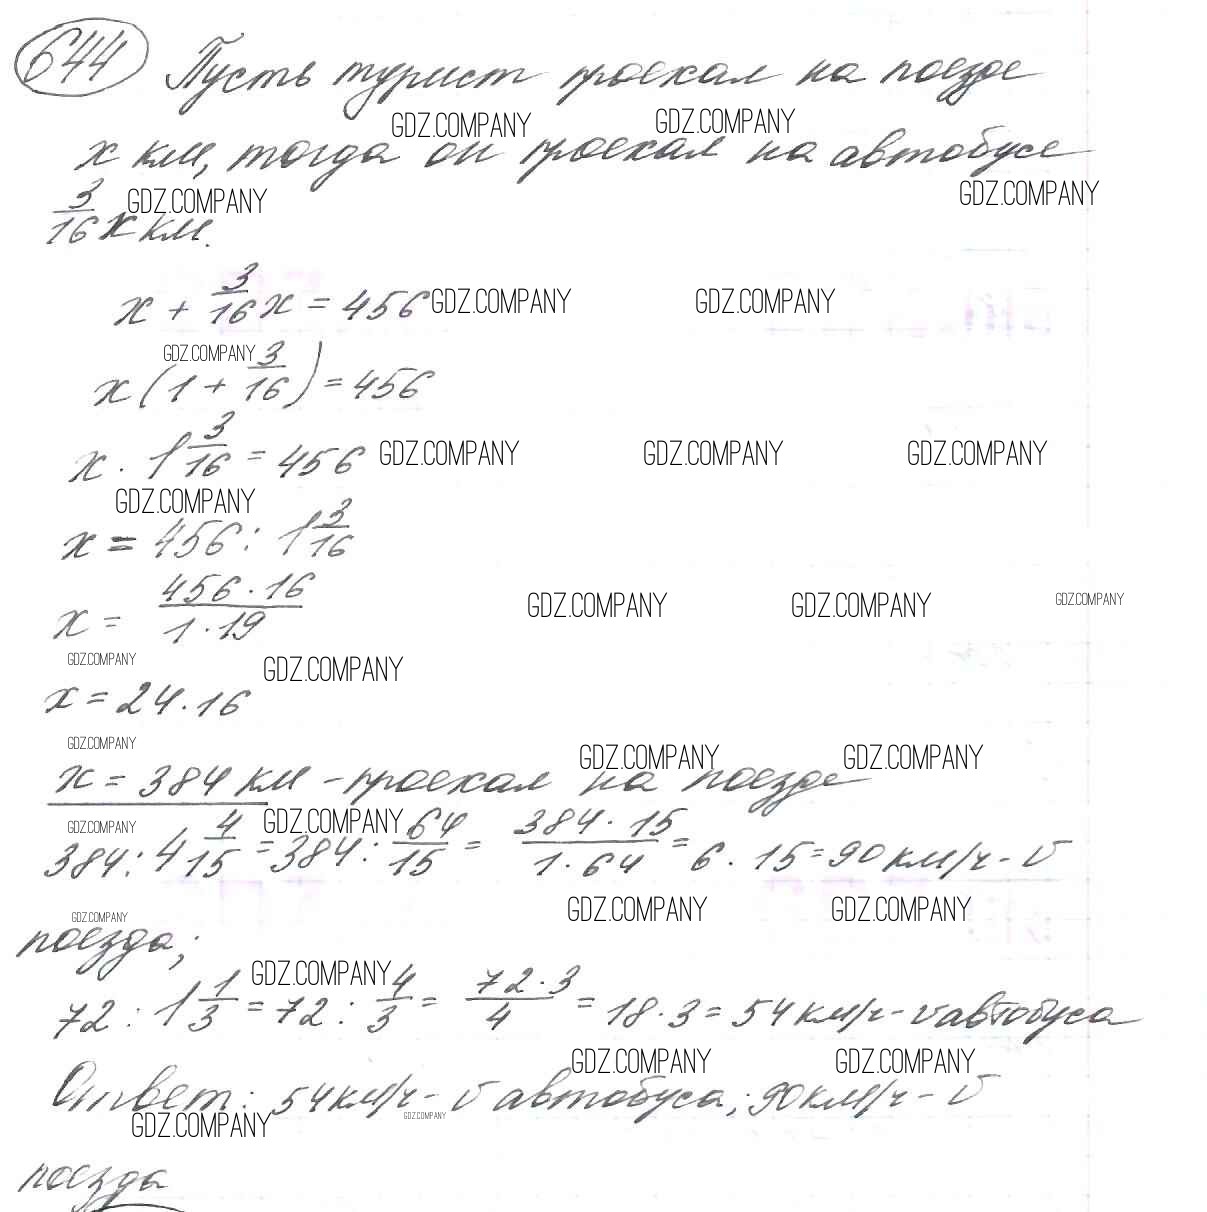 644 Пусть турист проехал на поезде
GDZ.COMPANY GDZ.COMPANY
x км, тогда он проехал на автобусе
GDZ.COMPANY GDZ.COMPANY
3/16 x км.
x + 3/16 x = 456 GDZ.COMPANY GDZ.COMPANY
GDZ.COMPANY
x (1 + 3/16) = 456
x · 1 3/16 = 456 GDZ.COMPANY GDZ.COMPANY GDZ.COMPANY
GDZ.COMPANY
x = 456 : 1 3/16
x = 456 · 16 / 1 · 19 GDZ.COMPANY GDZ.COMPANY GDZ.COMPANY
GDZ.COMPANY GDZ.COMPANY
x = 24 · 16
GDZ.COMPANY GDZ.COMPANY GDZ.COMPANY
x = 384 км - проехал на поезде
GDZ.COMPANY GDZ.COMPANY
384 : 4 4/15 = 384 : 64/15 = 384 · 15 / 1 · 64 = 6 · 15 = 90 км/ч - v
GDZ.COMPANY GDZ.COMPANY GDZ.COMPANY
поезда;
GDZ.COMPANY
72 : 1 1/3 = 72 : 4/3 = 72 · 3 / 4 = 18 · 3 = 54 км/ч - v автобуса
GDZ.COMPANY GDZ.COMPANY
Ответ: 54 км/ч - v автобуса; 90 км/ч - v
GDZ.COMPANY GDZ.COMPANY
поезда